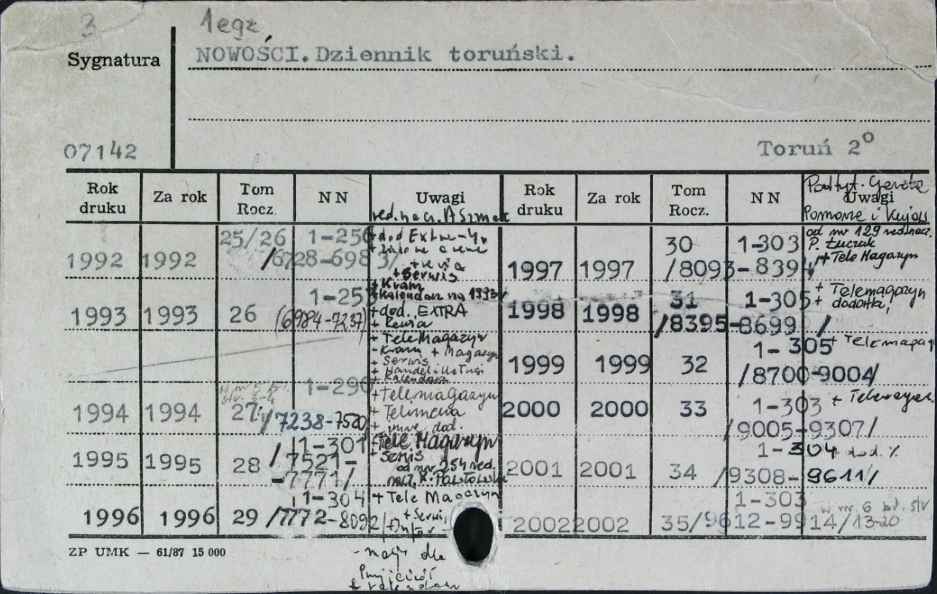 3 1egz
Sygnatura NOWOŚCI. Dziennik toruński.
07142 Toruń 2°
Rok druku Za rok Tom Rocz. NN Uwagi
red. nacz. A Szmak
1992 1992 25/26 1-250 /6728-6983/
+ dod Extra
+ Rewia
+ Serwis
+ Kram
+ Kalendarz na 1993
1993 1993 26 1-25 (6984-7237)
+ dod. EXTRA
+ Rewia
+ Tele Magazyn
- Kram + Magazyn
+ Serwis
+ Handel i Usługi
+ Kalendarz
1994 1994 27 1-290 /7238-7520/
+ Telemagazyn
+ inne dod.
1995 1995 28 1-301 /7521-7771/
Tele Magazyn
+ Serwis
od nr 254 red.
1996 1996 29 1-304 /7772-8092/
+ Tele Magazyn
+ Serwis
Rok druku Za rok Tom Rocz. NN Uwagi
Podtyt. Gazeta
Pomorza i Kujaw
od nr 129 red. nacz.
1997 1997 30 1-303 /8093-8394/
+ Tele Magazyn
1998 1998 31 1-305 /8395-8699/
+ Telemagazyn
+ dodatki
1999 1999 32 1-305 /8700-9004/
+ Telemagaz
2000 2000 33 1-303 /9005-9307/
2001 2001 34 1-304 /9308-9611/
2002 2002 35 1-303 /9612-9914/
w nr 6 bł. str
13-20
ZP UMK — 61/87 15 000